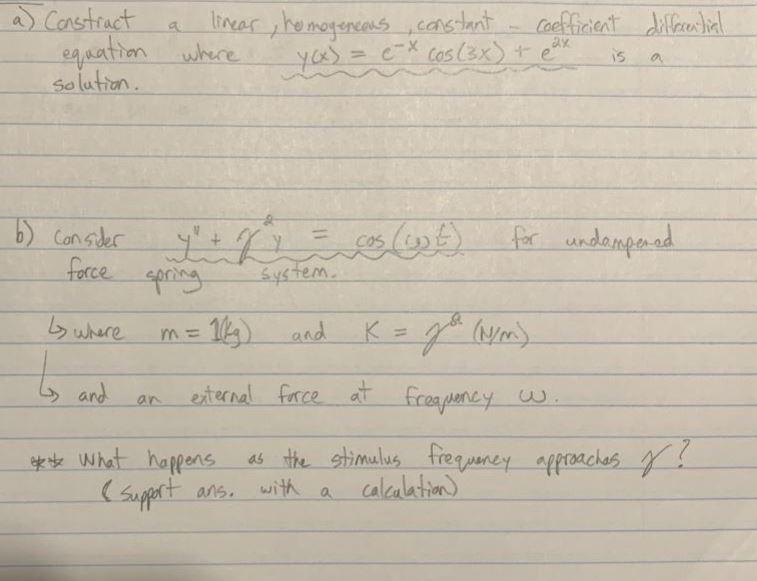 a) Construct a linear, homogeneous, constant - coefficient differential
equation where y(x) = e^{-x} cos(3x) + e^{2x} is a
solution.
b) Consider y'' + γ^2 y = cos(ωt) for undampened
force spring system.
↳ where m = 1(kg) and K = γ^2 (N/m)
↳ and an external force at frequency ω.
** What happens as the stimulus frequency approaches γ?
(support ans. with a calculation)